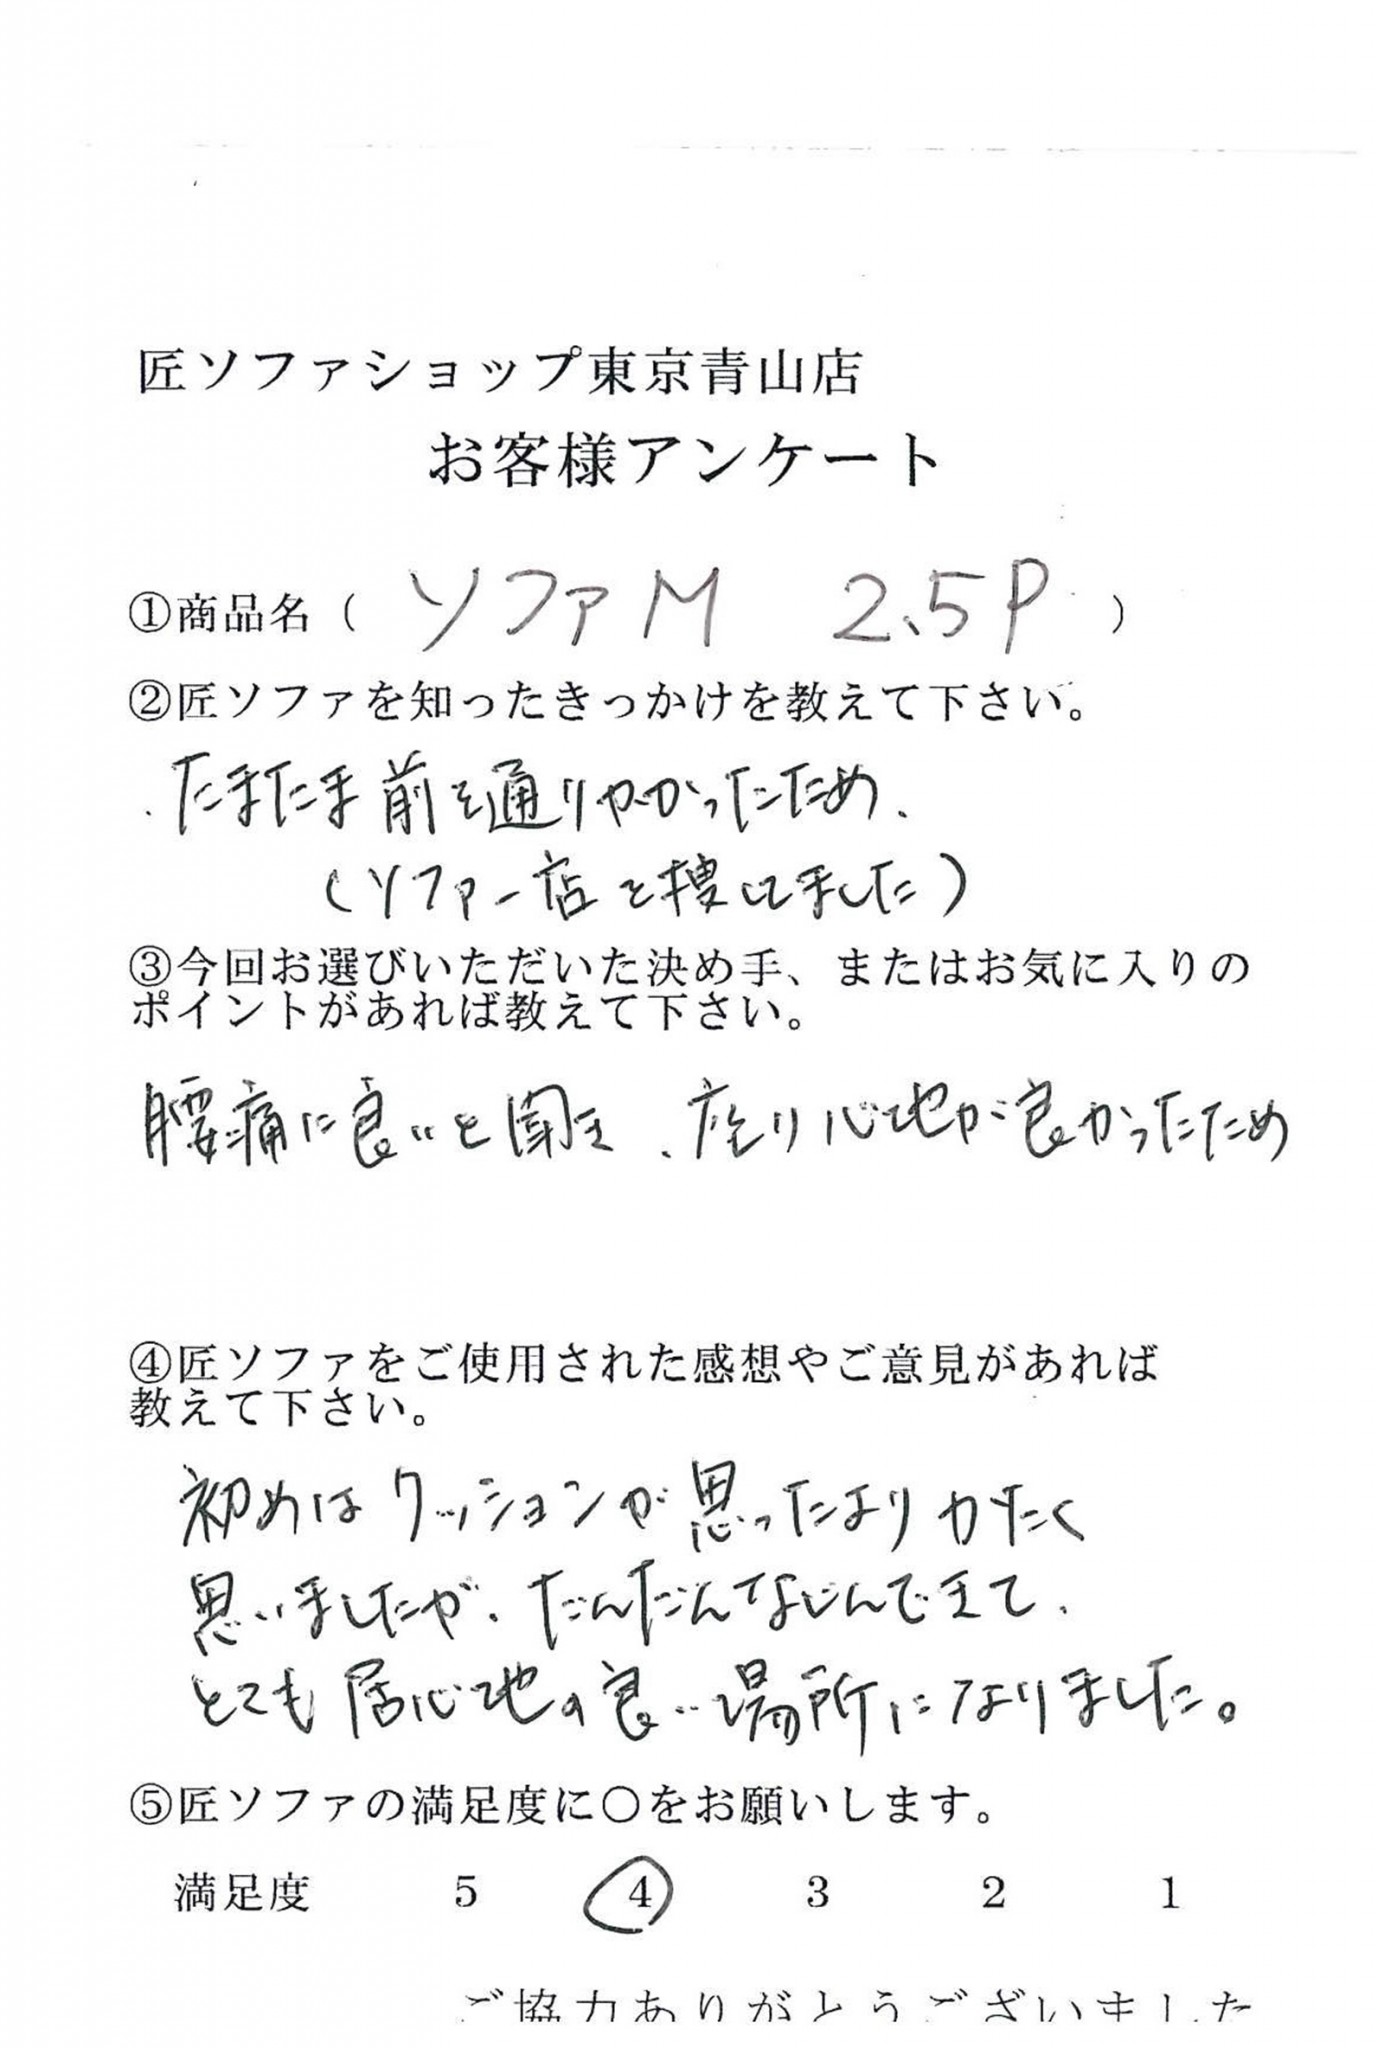 匠ソファショップ東京青山店
お客様アンケート
①商品名（ ソファM 2.5P ）
②匠ソファを知ったきっかけを教えて下さい。
・たまたま前を通りかかったため、
（ソファー店を捜してました）
③今回お選びいただいた決め手、またはお気に入りの
ポイントがあれば教えて下さい。
腰痛に良いと聞き、座り心地が良かったため
④匠ソファをご使用された感想やご意見があれば
教えて下さい。
初めはクッションが思ったよりかたく
思いましたが、だんだんなじんできて、
とても居心地の良い場所になりました。
⑤匠ソファの満足度に○をお願いします。
満足度 5 4 3 2 1
ご協力ありがとうございました